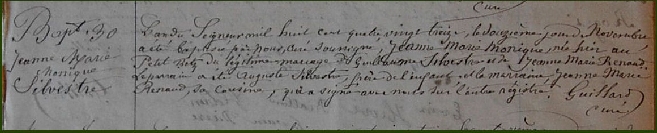 curé
Bapt. 30
Jeanne Marie
Monique
Silvestre
L'an du Seigneur mil huit cent quatre vingt treize, le douzième jour de Novembre
a été baptisée par nous, curé soussigné, Jeanne Marie Monique, née hier au
Petit Metz du légitime mariage de Guillaume Silvestre et de Jeanne Marie Renaud,
Le parrain a été Auguste Silvestre, frère de l'enfant, et la marraine Jeanne Marie
Renaud, sa cousine, qui a signé avec nous sur l'autre registre. Guillard
curé